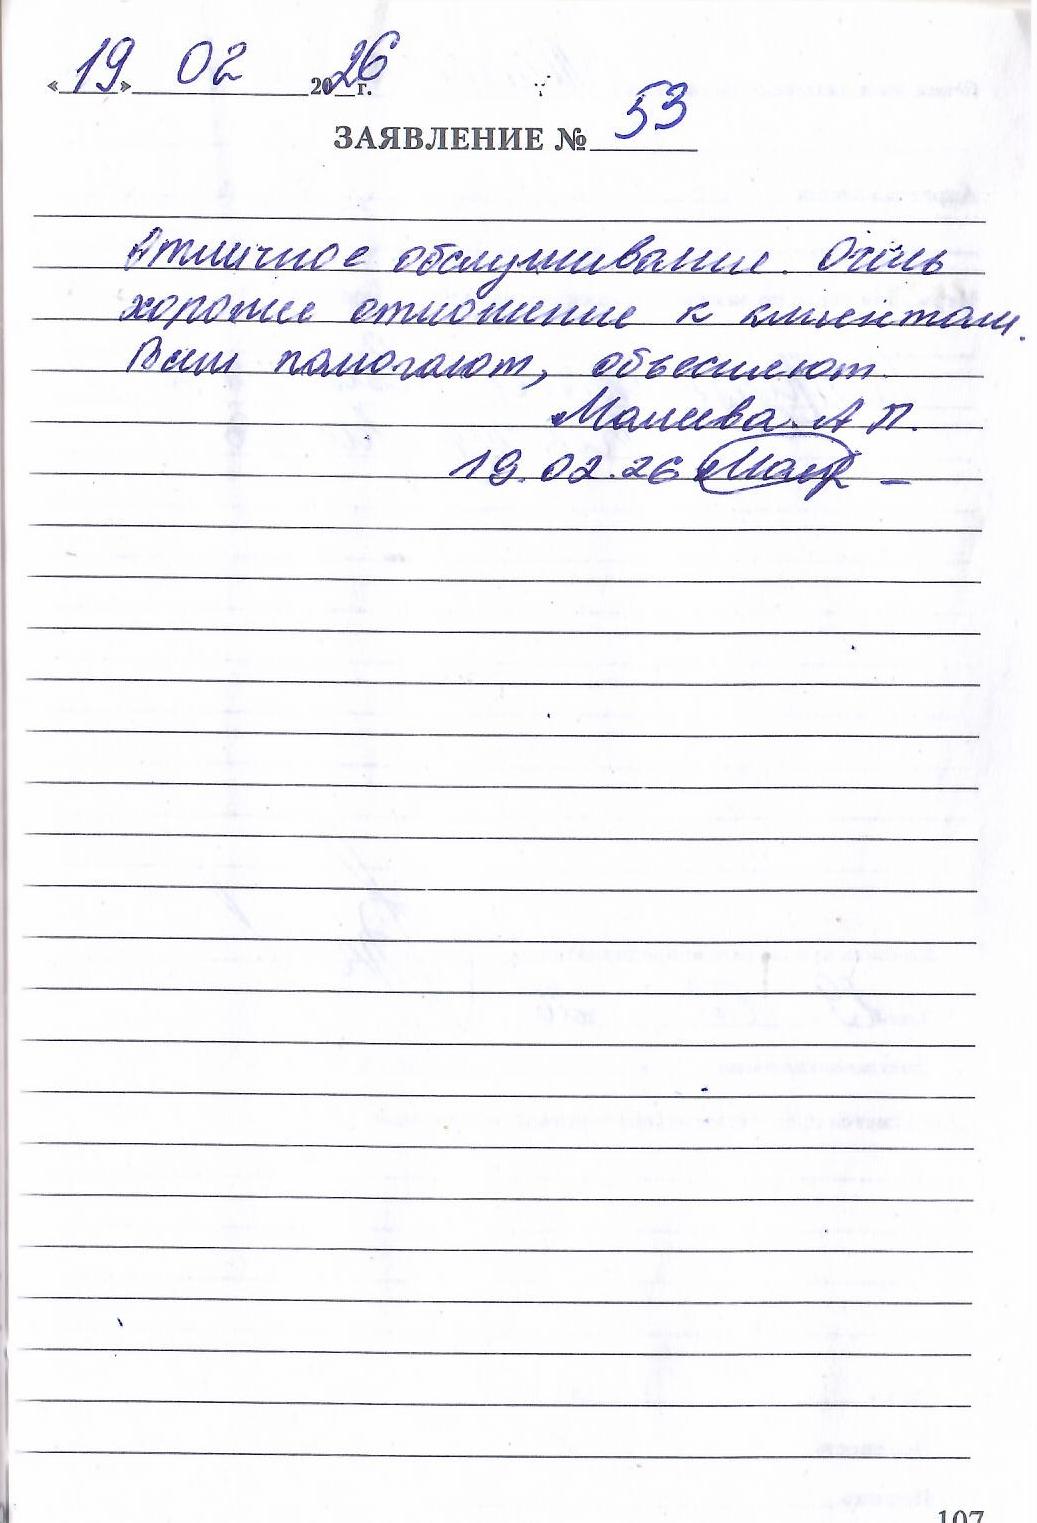 «19» 02 2026 г.
ЗАЯВЛЕНИЕ № 53
Атличное обслуживание. Очень
хорошее отношение к клиентам.
Всем памогают, объесняют.
А.П.
19.02.26
107